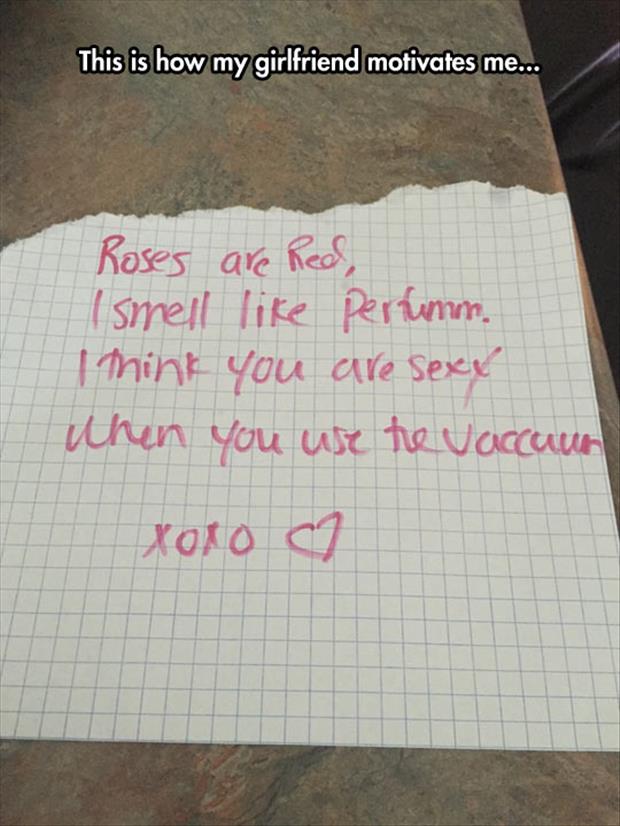 This is how my girlfriend motivates me...
Roses are Red,
I smell like Perfumm.
I think you are sexy
when you use the vaccuum
xoxo ♡